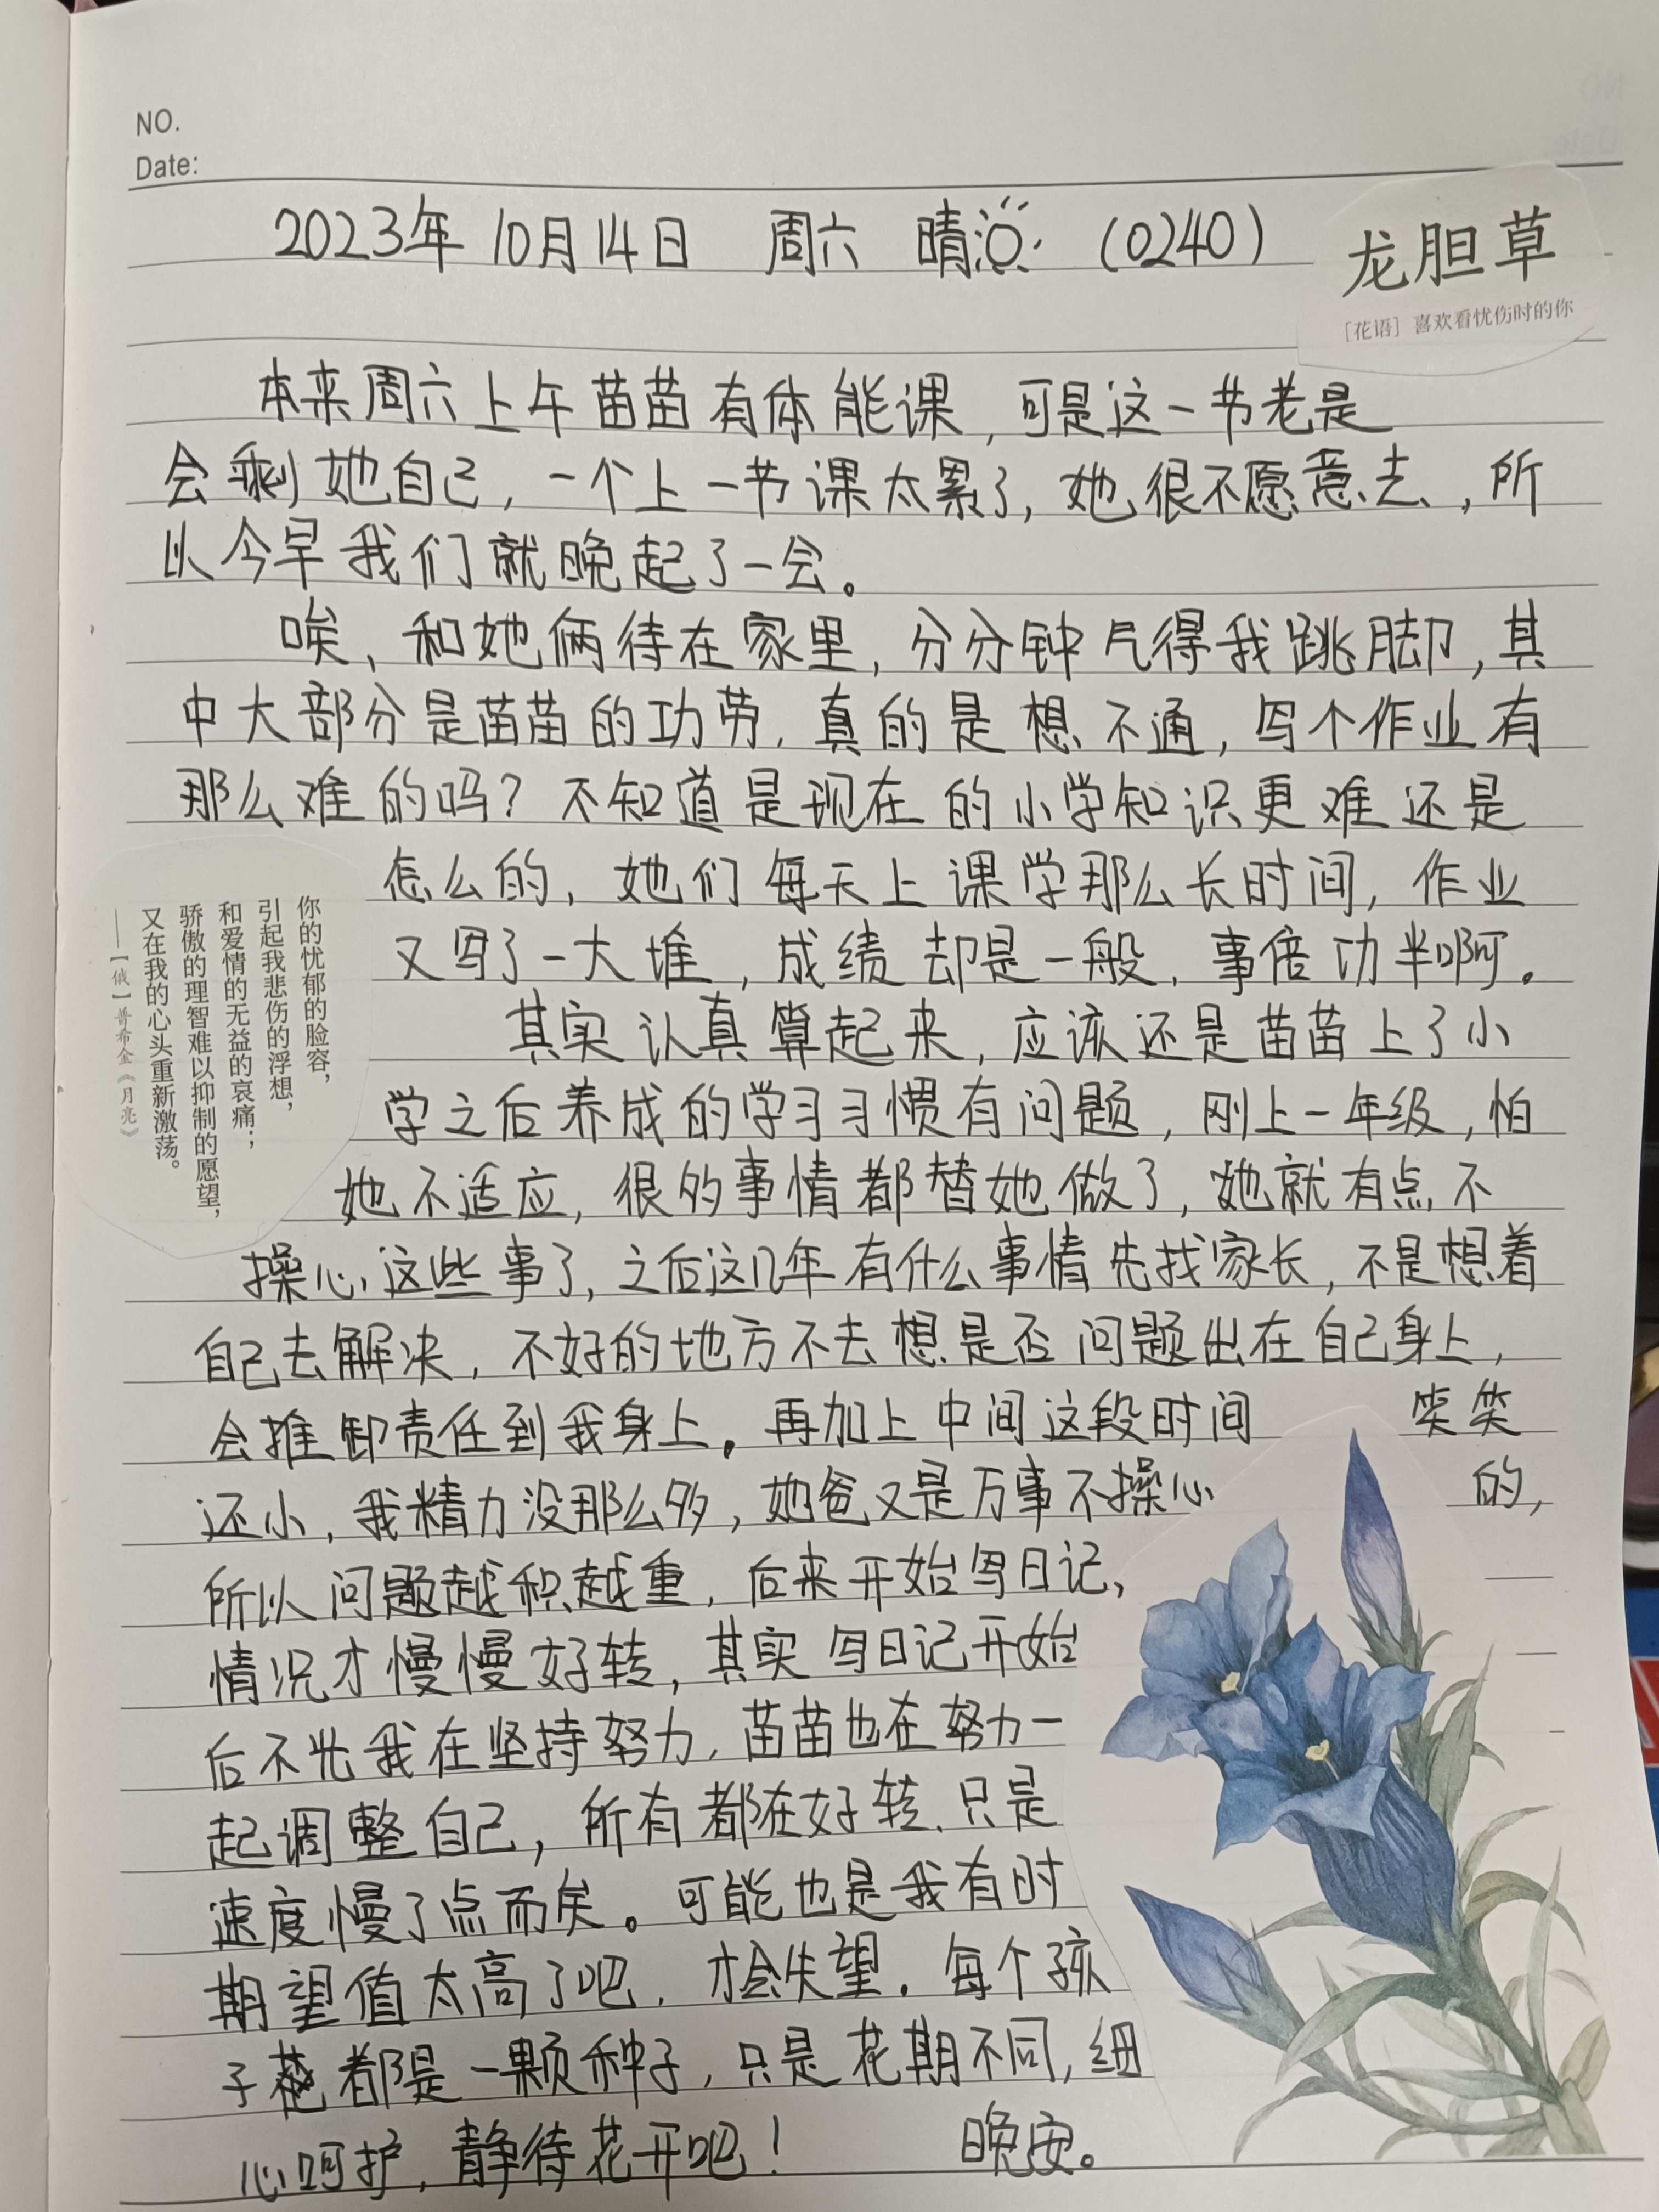 NO.
Date:
2023年 10月14日 周六 晴 (0240)
龙胆草
[花语] 喜欢看忧伤时的你
本来周六上午苗苗有体能课，可是这一节老是
会剩她自己，一个上一节课太累了，她很不愿意去，所
以今早我们就晚起了一会。
唉，和她俩待在家里，分分钟气得我跳脚，其
中大部分是苗苗的功劳，真的是想不通，写个作业有
那么难的吗？不知道是现在的小学知识更难还是
怎么的，她们每天上课学那么长时间，作业
又写了一大堆，成绩却是一般，事倍功半啊。
其实认真算起来，应该还是苗苗上了小
学之后养成的学习习惯有问题，刚上一年级，怕
她不适应，很多事情都替她做了，她就有点不
操心这些事了，之后这几年有什么事情先找家长，不是想着
自己去解决，不好的地方不去想是否问题出在自己身上，
会推卸责任到我身上。再加上中间这段时间 笑笑
还小，我精力没那么多，她爸又是万事不操心 的，
所以问题越积越重，后来开始写日记，
情况才慢慢好转，其实写日记开始
后不光我在坚持努力，苗苗也在努力一
起调整自己，所有都在好转，只是
速度慢了点而矣。可能也是我有时
期望值太高了吧，才会失望。每个孩
子都是一颗种子，只是花期不同，细
心呵护，静待花开吧！ 晚安。
你的忧郁的脸容，
引起我悲伤的浮想，
和爱情的无益的哀痛；
骄傲的理智难以抑制的愿望，
又在我的心头重新激荡。
——【俄】普希金《月亮》